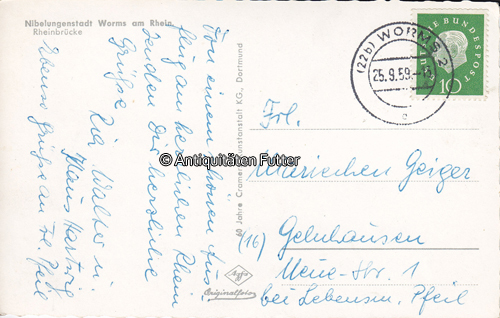 Nibelungenstadt Worms am Rhein
Rheinbrücke
Von einem schönen Aus-
flug am herrlichen Rhein
senden Dir herzliche
Grüße
Ria Walter u.
Klaus
Ebenso Grüße an Fr. Pfeil
60 Jahre Cramers Kunstanstalt KG., Dortmund
Agfa
Originalfoto
(22b) WORMS 2
25.9.59.
c
DEUTSCHE BUNDESPOST
10
Frl.
Mariechen Geiger
(16) Gelnhausen
Neue-Str. 1
bei Lebensm. Pfeil
© Antiquitäten Futter